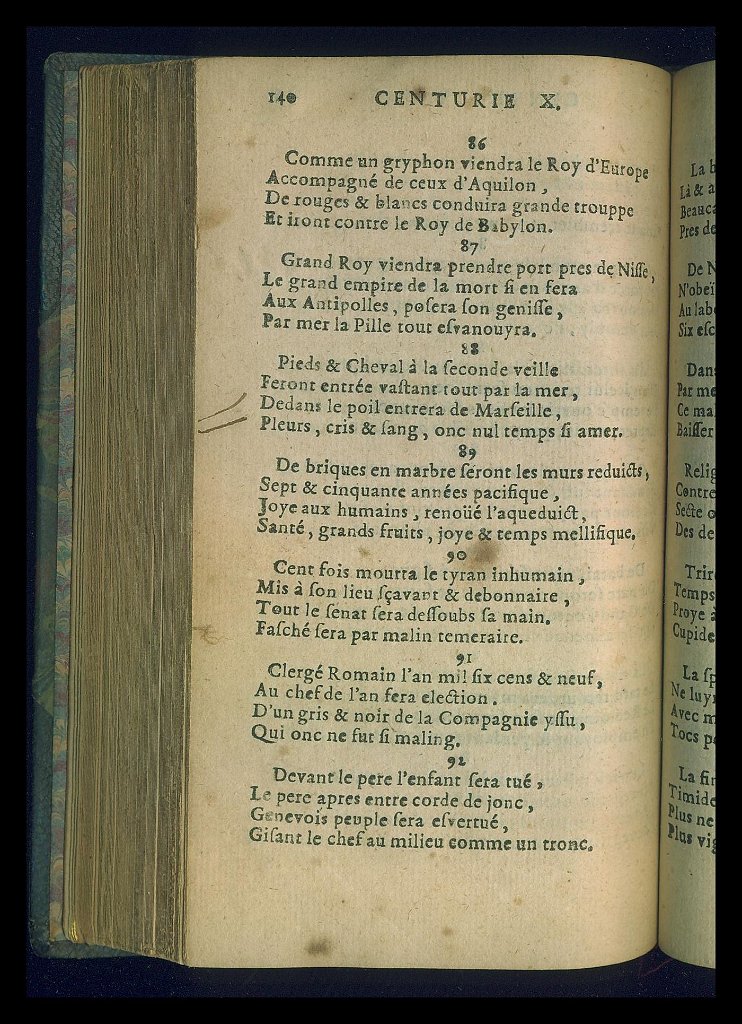 140 CENTURIE X.
86
Comme un gryphon viendra le Roy d'Europe
Accompagné de ceux d'Aquilon,
De rouges & blancs conduira grande trouppe
Et iront contre le Roy de Babylon.
87
Grand Roy viendra prendre port pres de Niſſe,
Le grand empire de la mort ſi en fera
Aux Antipolles, poſera ſon geniſſe,
Par mer la Pille tout eſvanouyra.
88
Pieds & Cheval à la ſeconde veille
Feront entrée vaſtant tout par la mer,
Dedans le poil entrera de Marſeille,
Pleurs, cris & ſang, onc nul temps ſi amer.
89
De briques en marbre ſeront les murs reduicts,
Sept & cinquante années pacifique,
Joye aux humains, renoüé l'aqueduict,
Santé, grands fruits, joye & temps mellifique.
90
Cent fois mourra le tyran inhumain,
Mis à ſon lieu ſçavant & debonnaire,
Tout le ſenat ſera deſſoubs ſa main.
Faſché ſera par malin temeraire.
91
Clergé Romain l'an mil ſix cens & neuf,
Au chef de l'an fera election.
D'un gris & noir de la Compagnie yſſu,
Qui onc ne fut ſi maling.
92
Devant le pere l'enfant ſera tué,
Le pere apres entre corde de jonc,
Genevois peuple ſera eſvertué,
Giſant le chef au milieu comme un tronc.
La
Là & a
Pres de
De N
N'obeï
Au lab
Six eſc
Dan
Par me
Ce ma
Baiſſer
Relig
Contre
Secte o
Des de
Trir
Temps
Proye à
Cupide
La ſp
Ne luy
Avec m
Tocs p
La fin
Timide
Plus ne
Plus vig